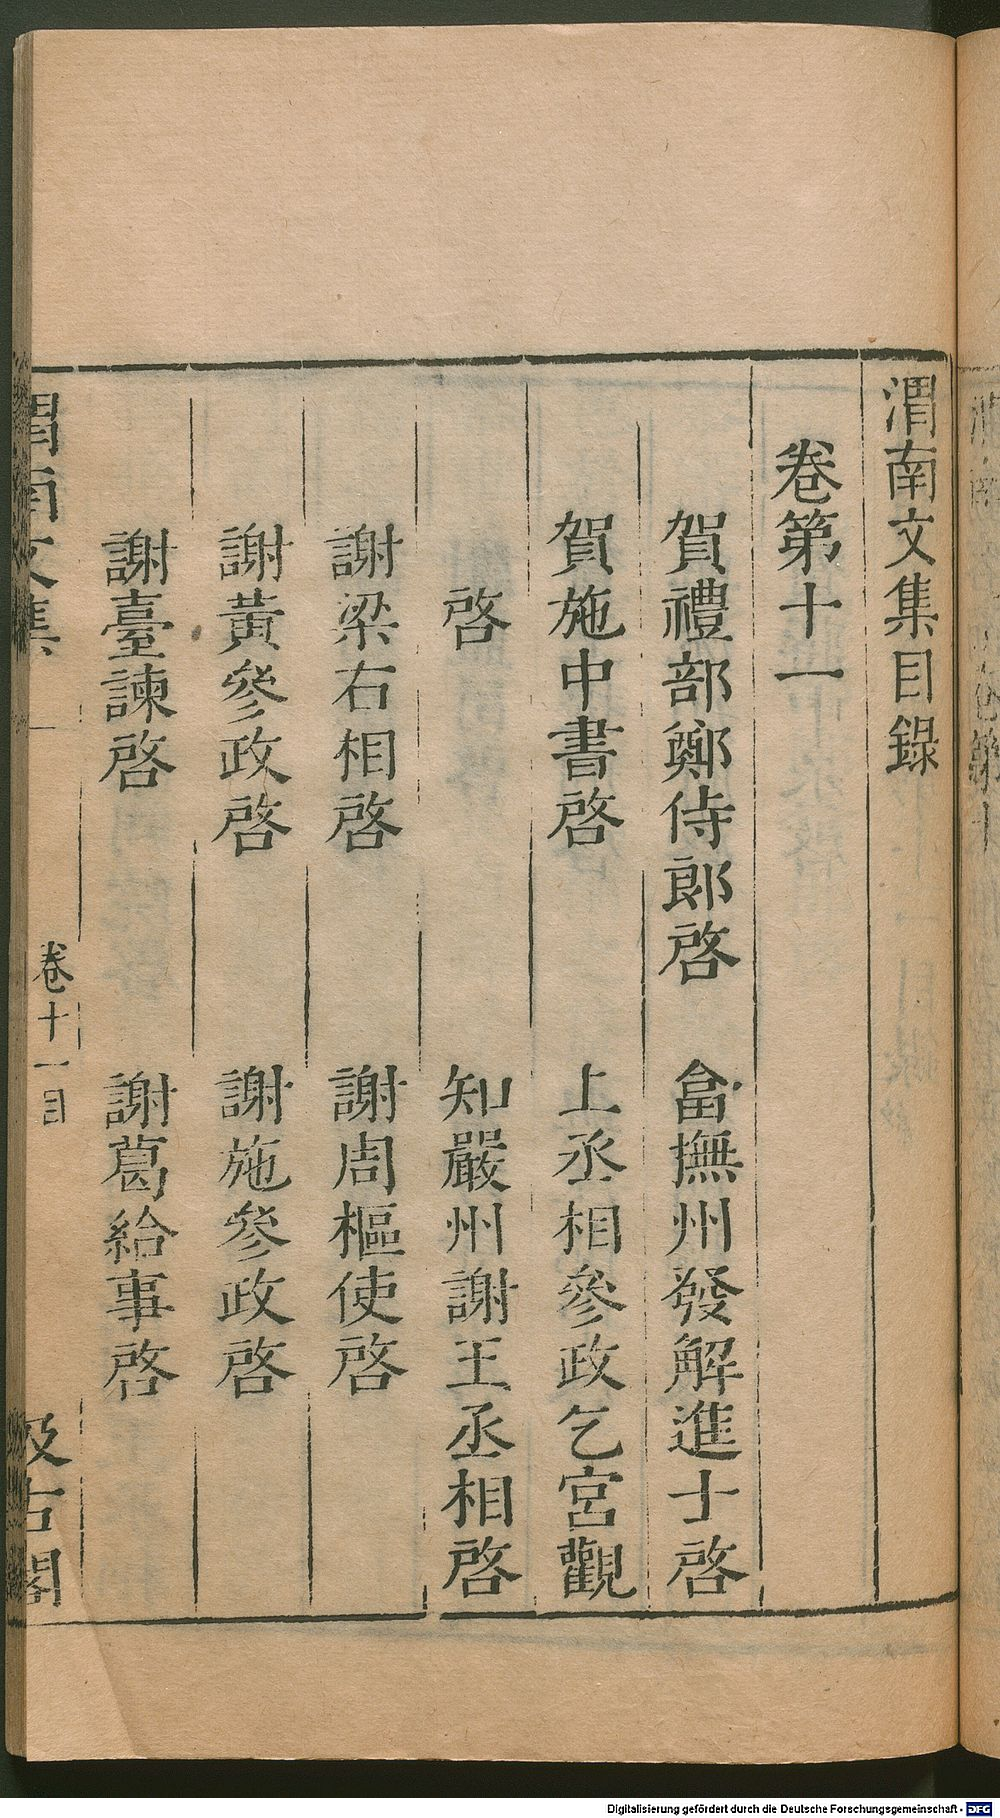 渭南文集目錄
卷第十一
賀禮部鄭侍郎啓　畣撫州發解進士啓
賀施中書啓　上丞相參政乞宮觀
啓　知嚴州謝王丞相啓
謝梁右相啓　謝周樞使啓
謝黃參政啓　謝施參政啓
謝臺諫啓　謝葛給事啓
渭南文集　卷十一目　汲古閣
Digitalisierung gefördert durch die Deutsche Forschungsgemeinschaft - DFG